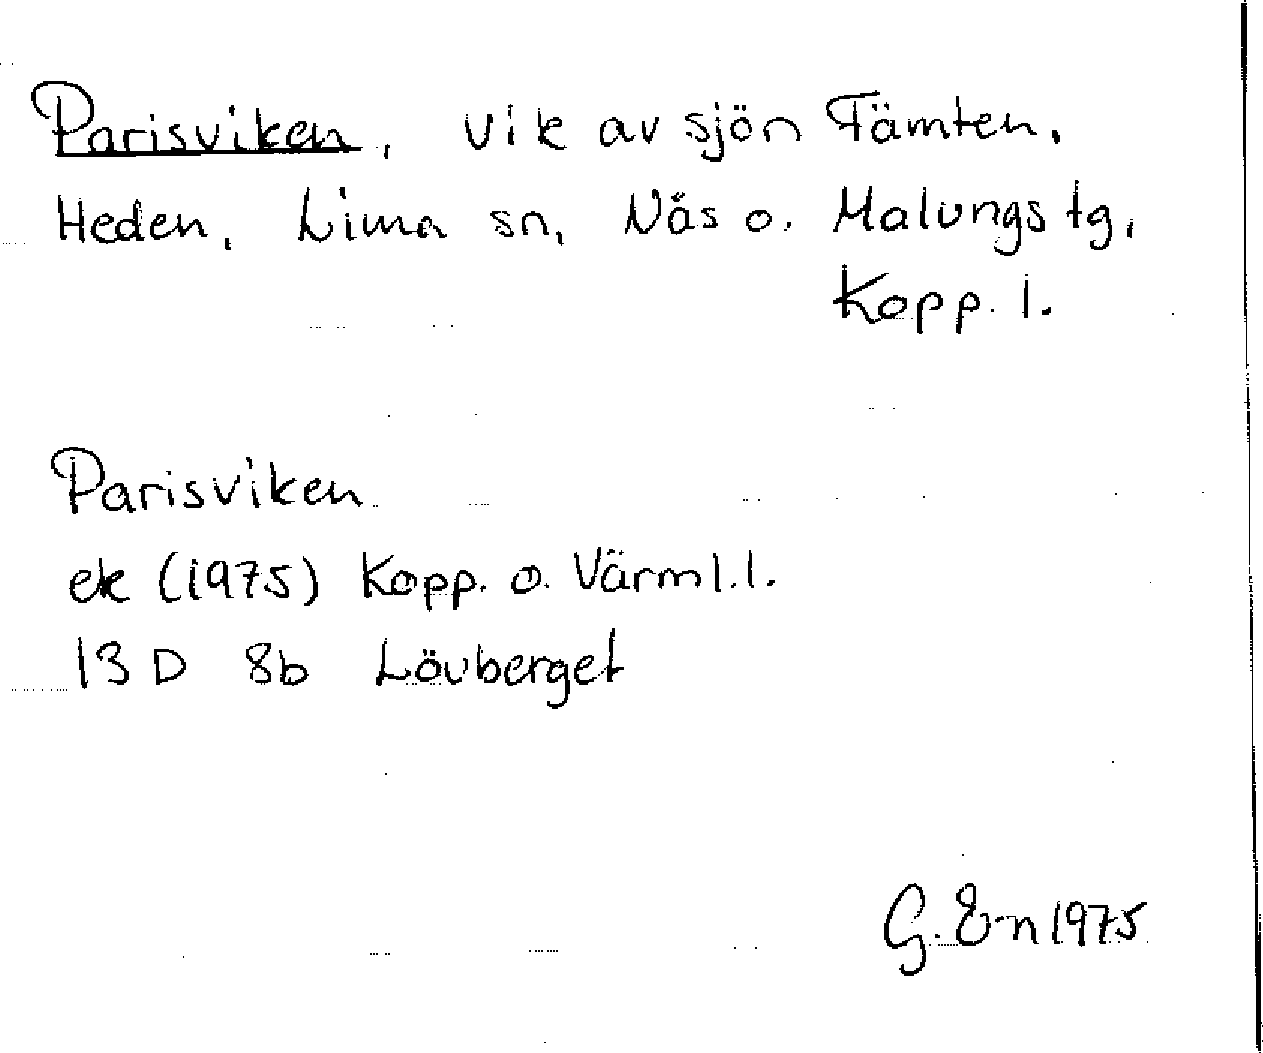 Parisviken, vik av sjön Tämten,
Heden, Lima sn, Nås o. Malungs tg,
Kopp. l.
Parisviken
ek (1975) Kopp. o. Värml. l.
13 D 8b Lövberget
G. E-n 1975